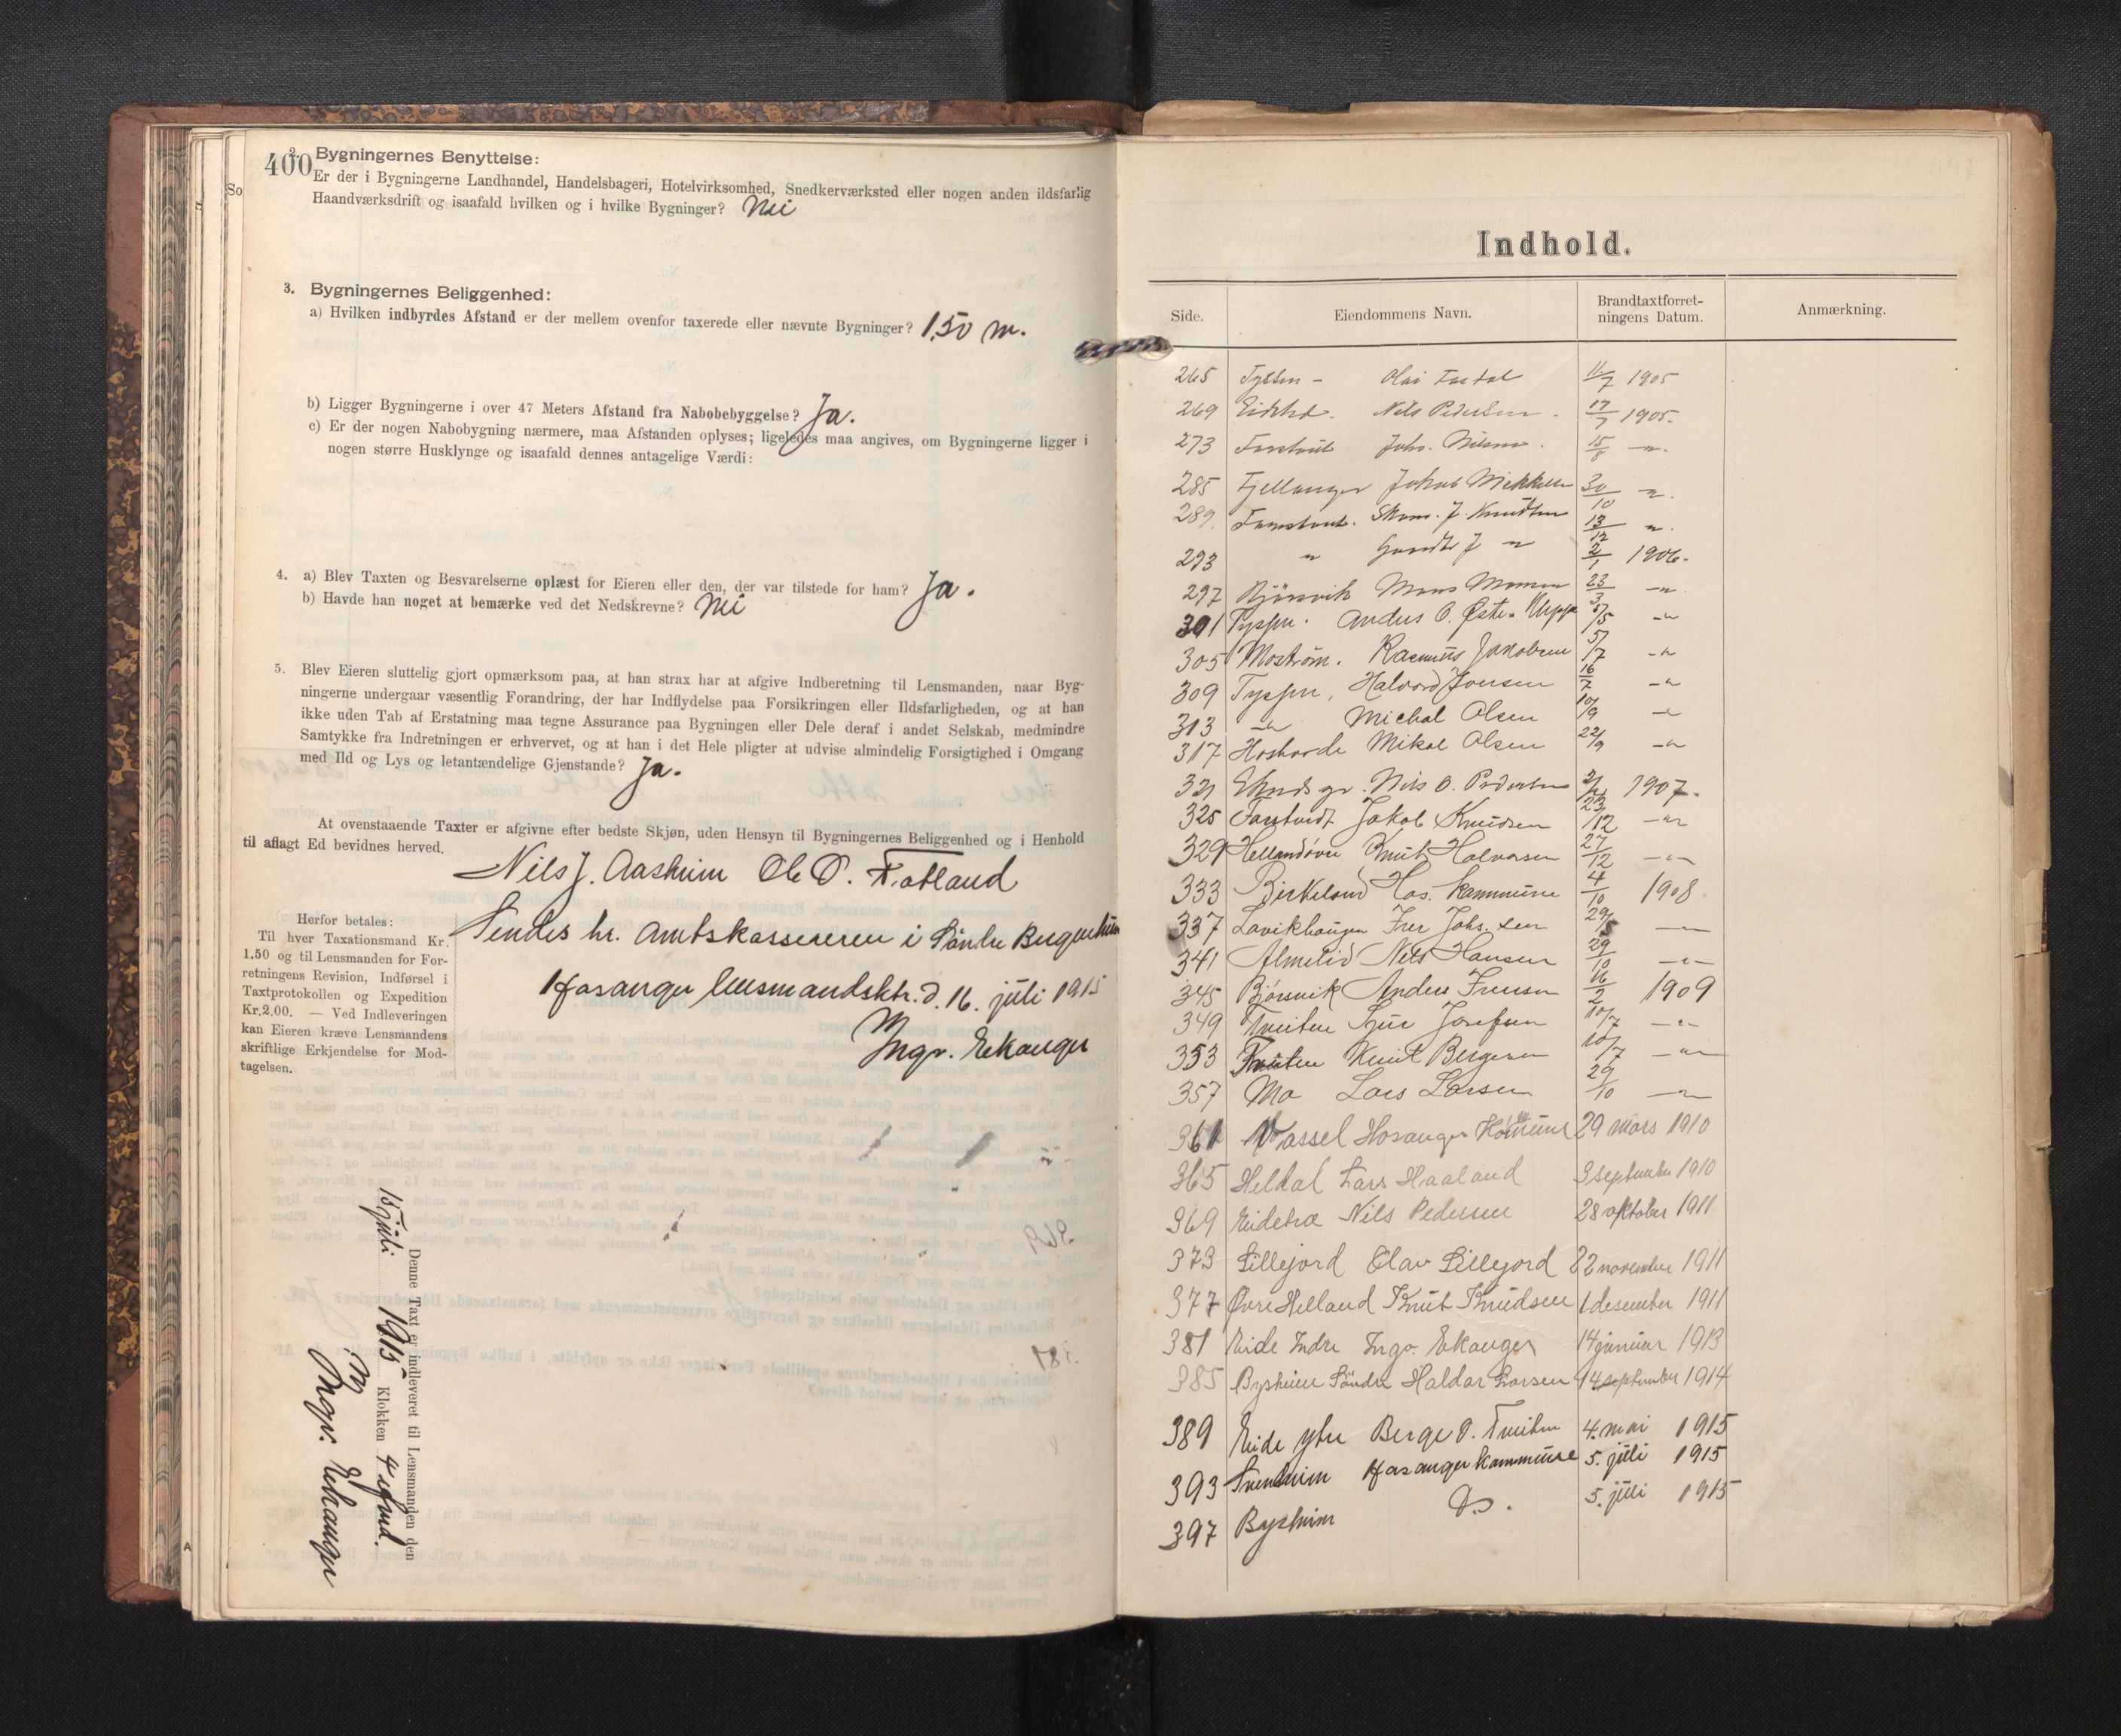 400
2. Bygningernes Benyttelse:
Er der i Bygningerne Landhandel, Handelsbageri, Hotelvirksomhed, Snedkerværksted eller nogen anden ildsfarlig
Haandværksdrift og isaafald hvilken og i hvilke Bygninger? Nei
So
3. Bygningernes Beliggenhed:
a) Hvilken indbyrdes Afstand er der mellem ovenfor taxerede eller nævnte Bygninger? 1,50 m.
b) Ligger Bygningerne i over 47 Meters Afstand fra Nabobebyggelse? Ja.
c) Er der nogen Nabobygning nærmere, maa Afstanden oplyses; ligeledes maa angives, om Bygningerne ligger i
nogen større Husklynge og isaafald dennes antagelige Værdi:
4. a) Blev Taxten og Besvarelserne oplæst for Eieren eller den, der var tilstede for ham? Ja.
b) Havde han noget at bemærke ved det Nedskrevne? Nei
5. Blev Eieren sluttelig gjort opmærksom paa, at han strax har at afgive Indberetning til Lensmanden, naar Byg-
ningerne undergaar væsentlig Forandring, der har Indflydelse paa Forsikringen eller Ildsfarligheden, og at han
ikke uden Tab af Erstatning maa tegne Assurance paa Bygningen eller Dele deraf i andet Selskab, medmindre
Samtykke fra Indretningen er erhvervet, og at han i det Hele pligter at udvise almindelig Forsigtighed i Omgang
med Ild og Lys og letantændelige Gjenstande? Ja.
At ovenstaaende Taxter er afgivne efter bedste Skjøn, uden Hensyn til Bygningernes Beliggenhed og i Henhold
til aflagt Ed bevidnes herved.
Nils J. Aasheim Ole O. Fotland
Sendes hr. Amtskassereren i Söndre Bergenhus
Hosanger lensmandsktr. d. 16. juli 1915
Ingv. Eikanger
Herfor betales:
Til hver Taxationsmand Kr.
1.50 og til Lensmanden for For-
retningens Revision, Indførsel i
Taxtprotokollen og Expedition
Kr. 2.00. — Ved Indleveringen
kan Eieren kræve Lensmandens
skriftlige Erkjendelse for Mod-
tagelsen.
Denne Taxt er indleveret til Lensmanden den
15 juli 1915 Klokken 4 efmd.
Ingv. Eikanger
Indhold.
Side. Eiendommens Navn. Brandtaxtforret-
ningens Datum. Anmærkning.
265 Olai 7 1905
269 Nils Pedersen. 17/7 1905.
273 Johs. Nilsen. 15/8 —"—.
285 Fjellanger Jakob Mikkelsen 30/10 "
289. J. Knudsen 13/12 "
293 " J " 2/1 1906.
297 Bjørsvik Mons Monsen 23/3 —"—
301 Tyssen. Anders O. /5 —"
305 Moström. Rasmus Jakobsen 5/7 —"
309 Tyssen, Halvord Jonsen 16/7 —"
313 —"— Michal Olsen 10/9 —"
317 Mikal Olsen 22/9 —"
321 Nils O. Pedersen 1907.
325 Jakob Knudsen 23/12 —"—
329 Knut Halvorsen 27/12 —"—
333 Birkeland Hos. kommune 4/10 1908
337 Lavikhaugen Iver Johs.sen 29/5 —"—
341 Almelid Nils Hansen 29/10 —"—
345 Bjørsvik Anders Iversen 16/2 1909
349 Tveiten Josefsen 10/7 —"—
353 Tveiten Knut Bergesen 10/7 —"—
357 Mo Lars Larsen 29/10 —"—
361 Vassel Hosanger Komune 29 mars 1910
365 Heldal Lars Haaland 3 september 1910
369 Eidetræ Nils Pedersen 28 oktober 1911
373 Lillejord Olav Lillejord 22 november 1911
377 Øvre Helland Knut Knudsen 1 desember 1911
381 Eide Indre Ingv. Eikanger 14 januar 1913
385 Bysheim Söndre Haldor Larsen 14 september 1914
389 Eide ytre Berge O. Tveiten 4. mai 1915
393 Hosanger kommune 5. juli 1915
397 Bysheim Do. 5. juli 1915